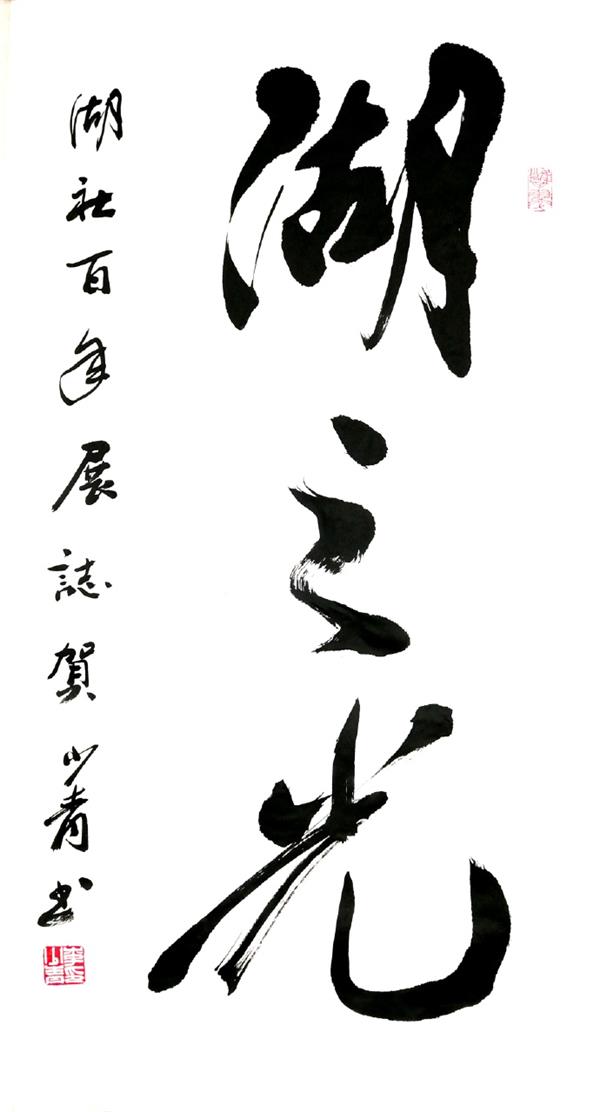 湖之光
湖社百年展誌賀 少青书